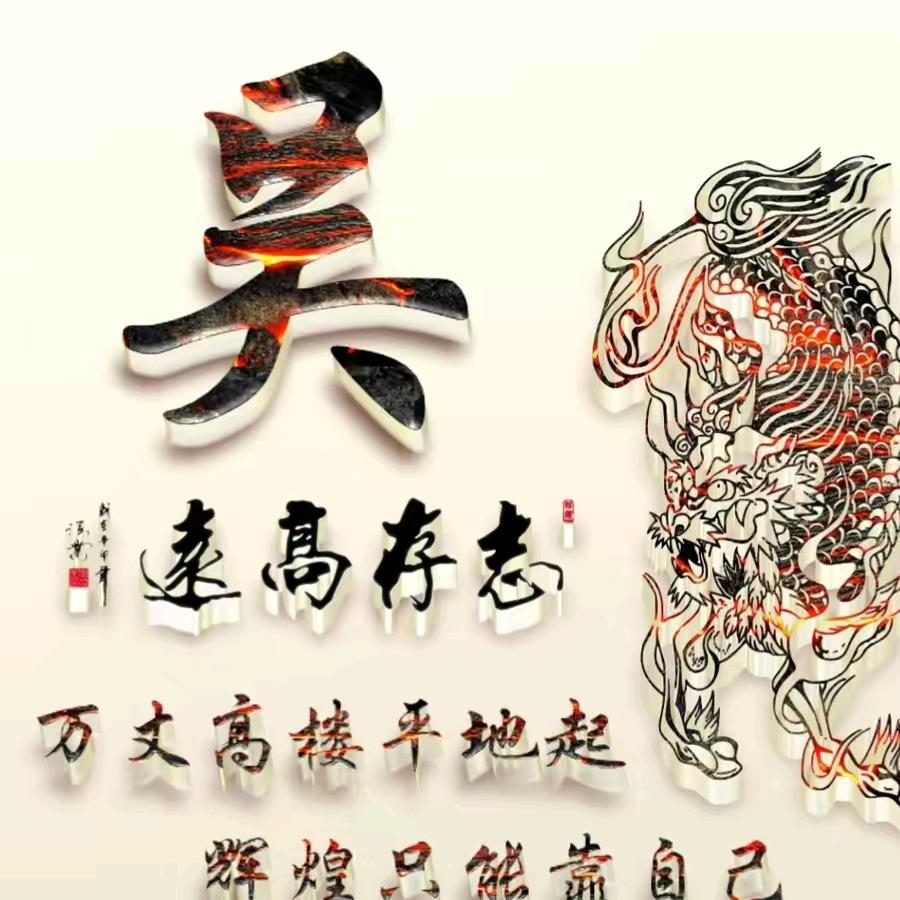 吴
志存高遠
万丈高楼平地起
辉煌只能靠自己